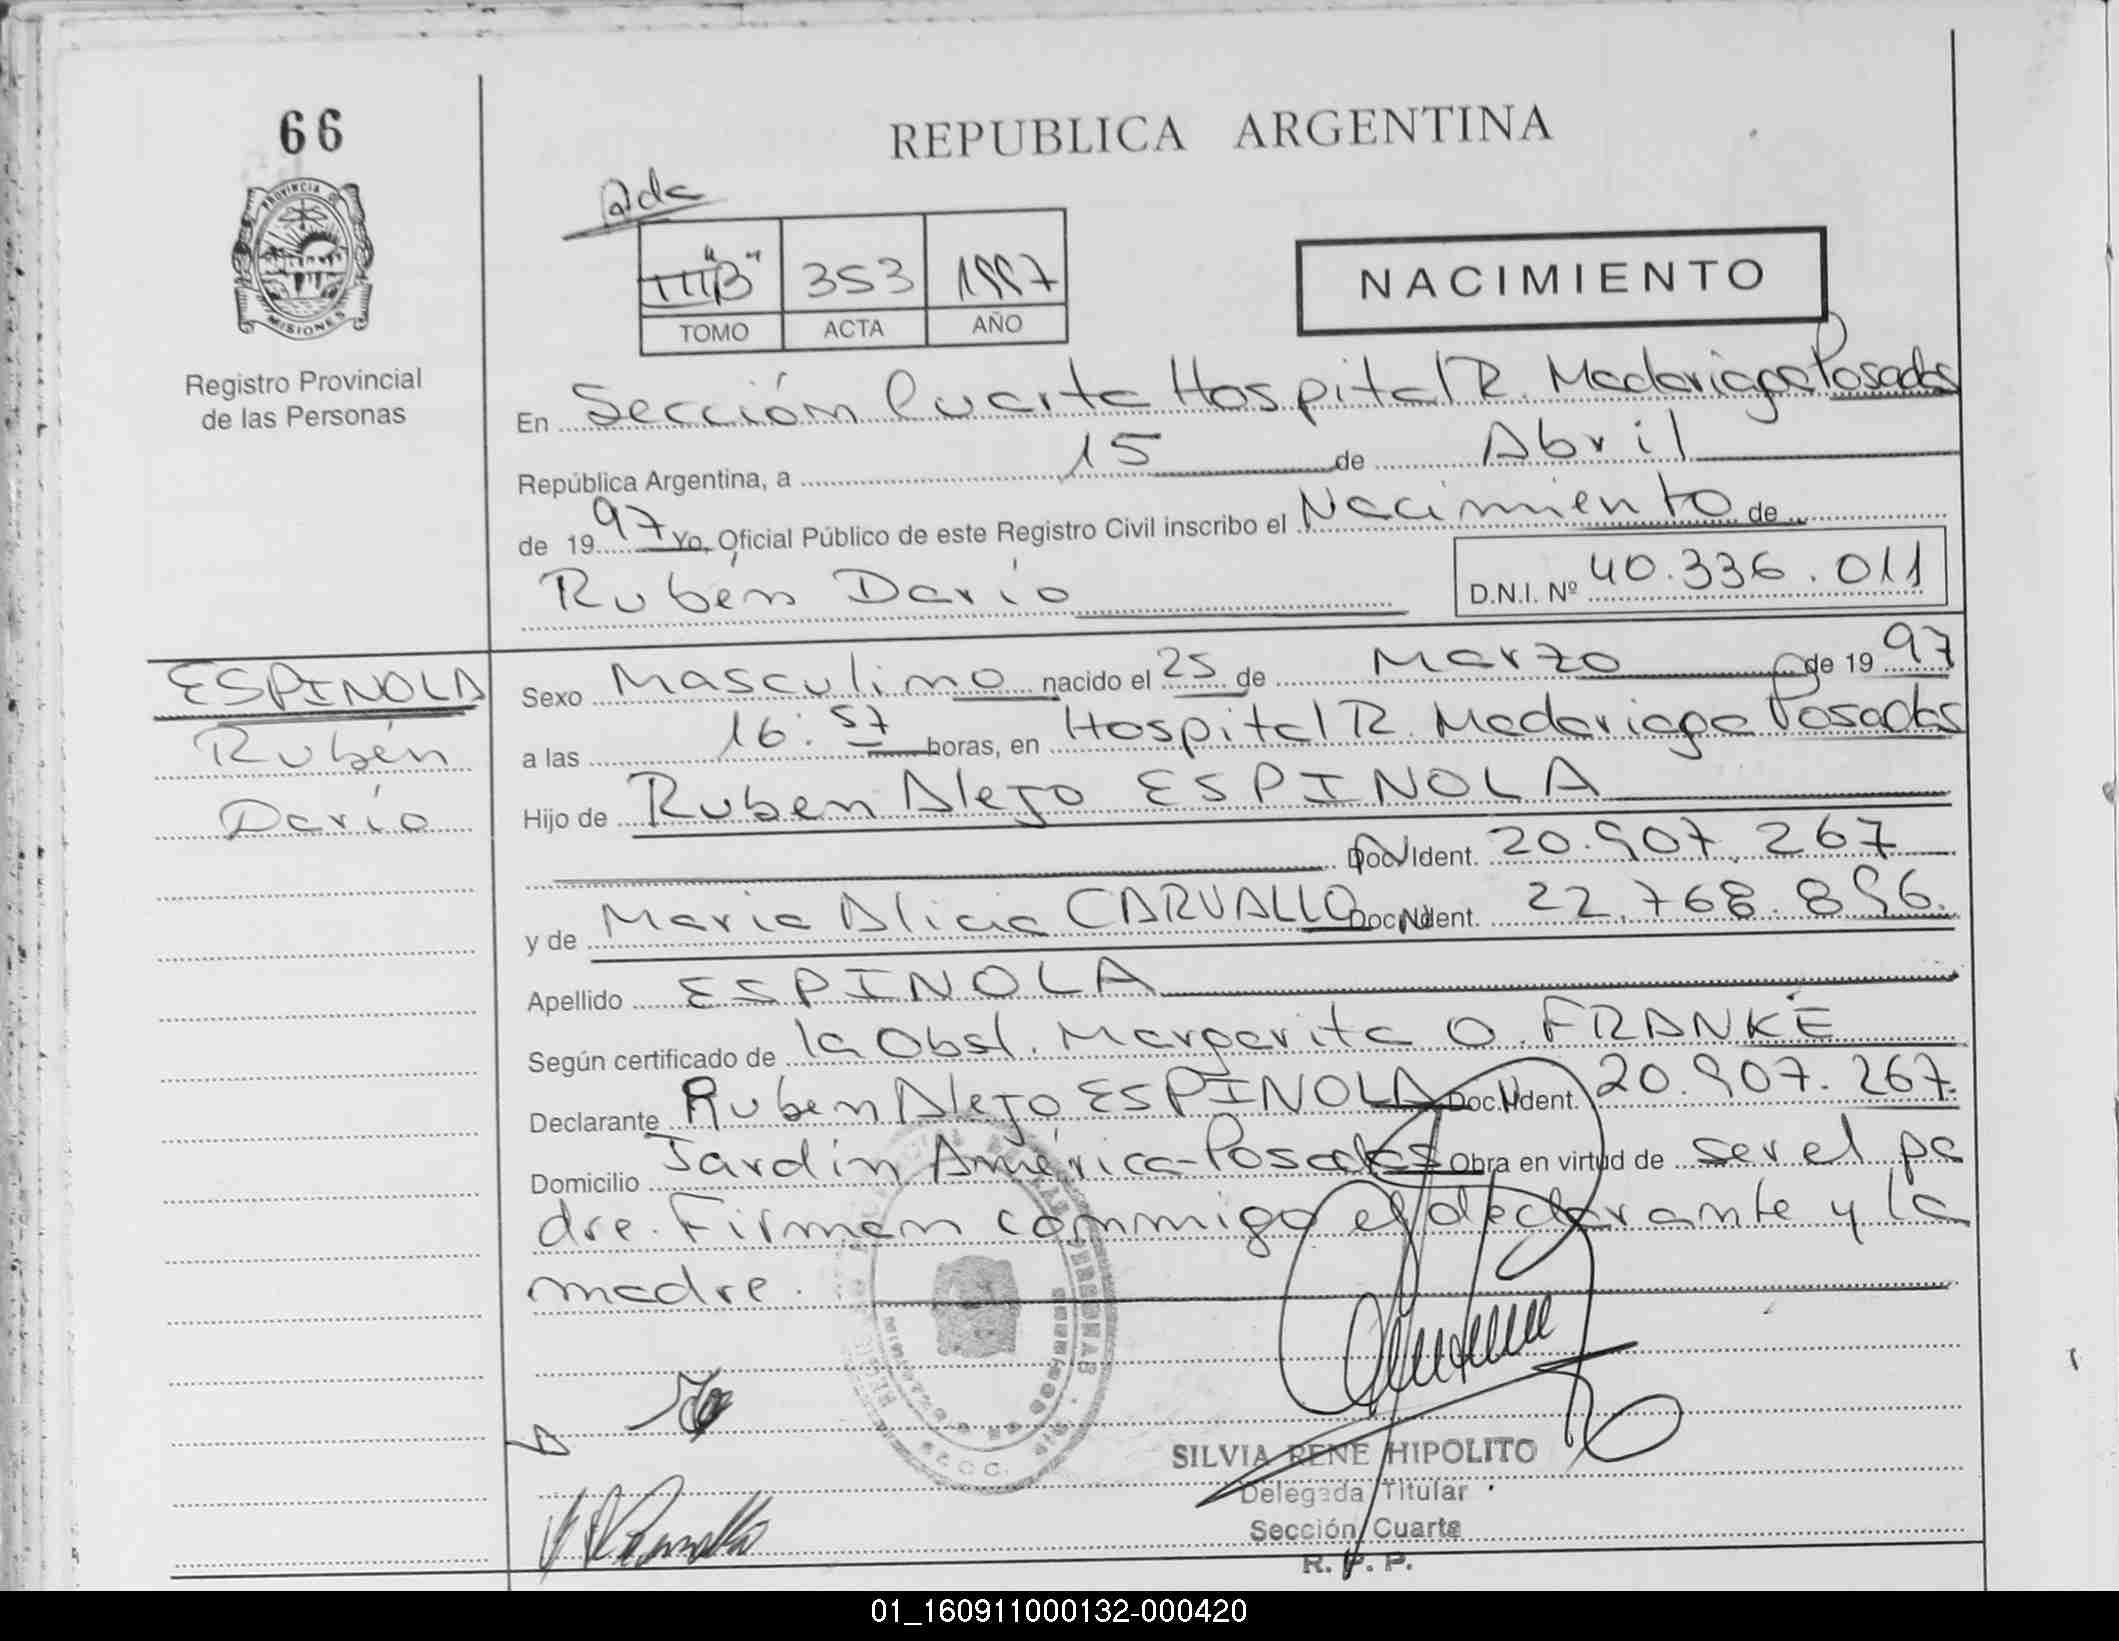 66
REPUBLICA ARGENTINA
PROVINCIA
MISIONES
Registro Provincial
de las Personas
III "B" 353 1997
TOMO ACTA AÑO
NACIMIENTO
En Sección Cuarta Hospital R. Madariaga Posadas
República Argentina, a 15 de Abril
de 1997 Yo, Oficial Público de este Registro Civil inscribo el Nacimiento de
Rubén Darío D.N.I. Nº 40.336.011
ESPINOLA
Rubén
Darío
Sexo Masculino nacido el 25 de Marzo de 1997
a las 16:57 horas, en Hospital R. Madariaga Posadas
Hijo de Ruben Alejo ESPINOLA
Doc. Ident. 20.907.267
y de Maria Alicia CARVALLO Doc. Ident. 22.768.896.
Apellido ESPINOLA
Según certificado de la Obst. Margarita O. FRANKE
Declarante Ruben Alejo ESPINOLA Doc. Ident. 20.907.267.
Domicilio Jardín América-Posadas Obra en virtud de ser el pa
dre. Firman conmigo el declarante y la
madre.
SILVIA RENE HIPOLITO
Delegada Titular
Sección Cuarta
R. P. P.
01_160911000132-000420